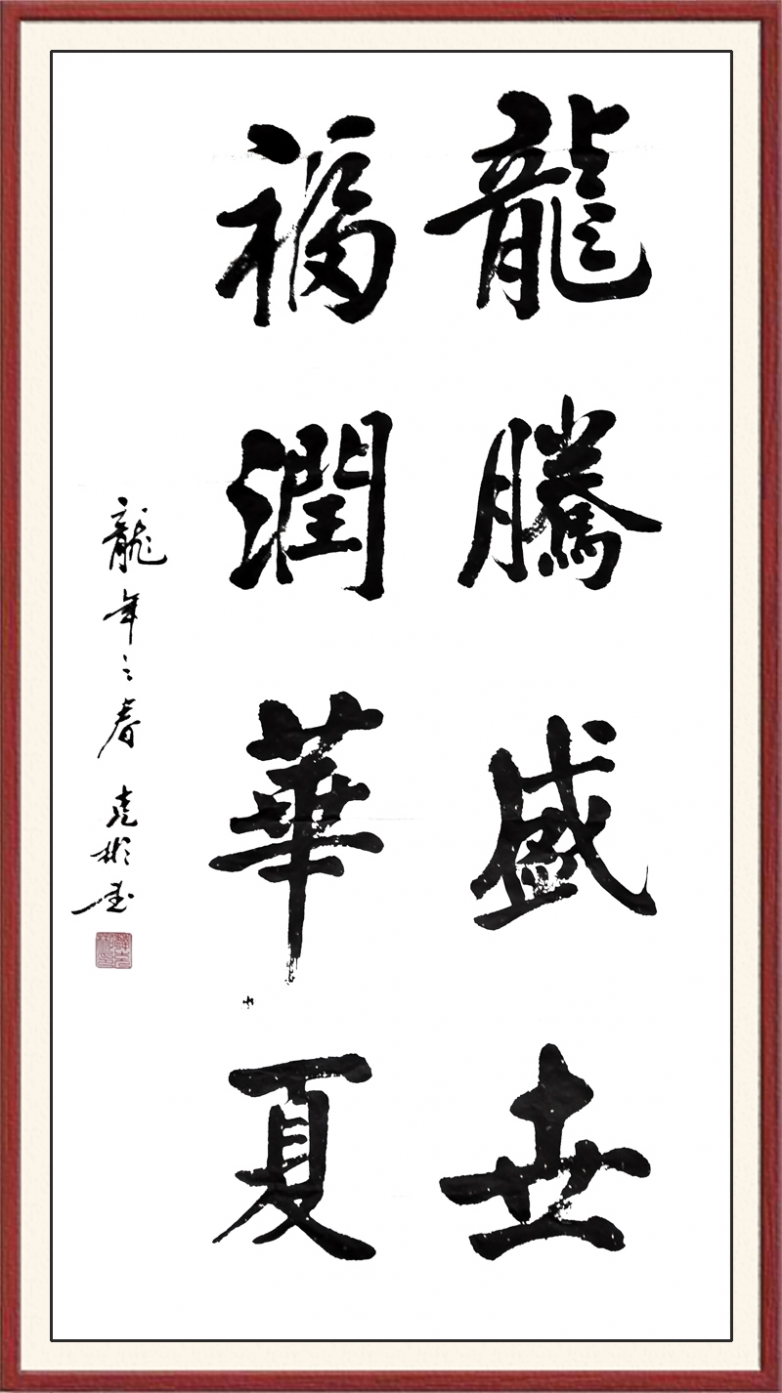 龍騰盛世
福潤華夏
龍年之春 克彬书